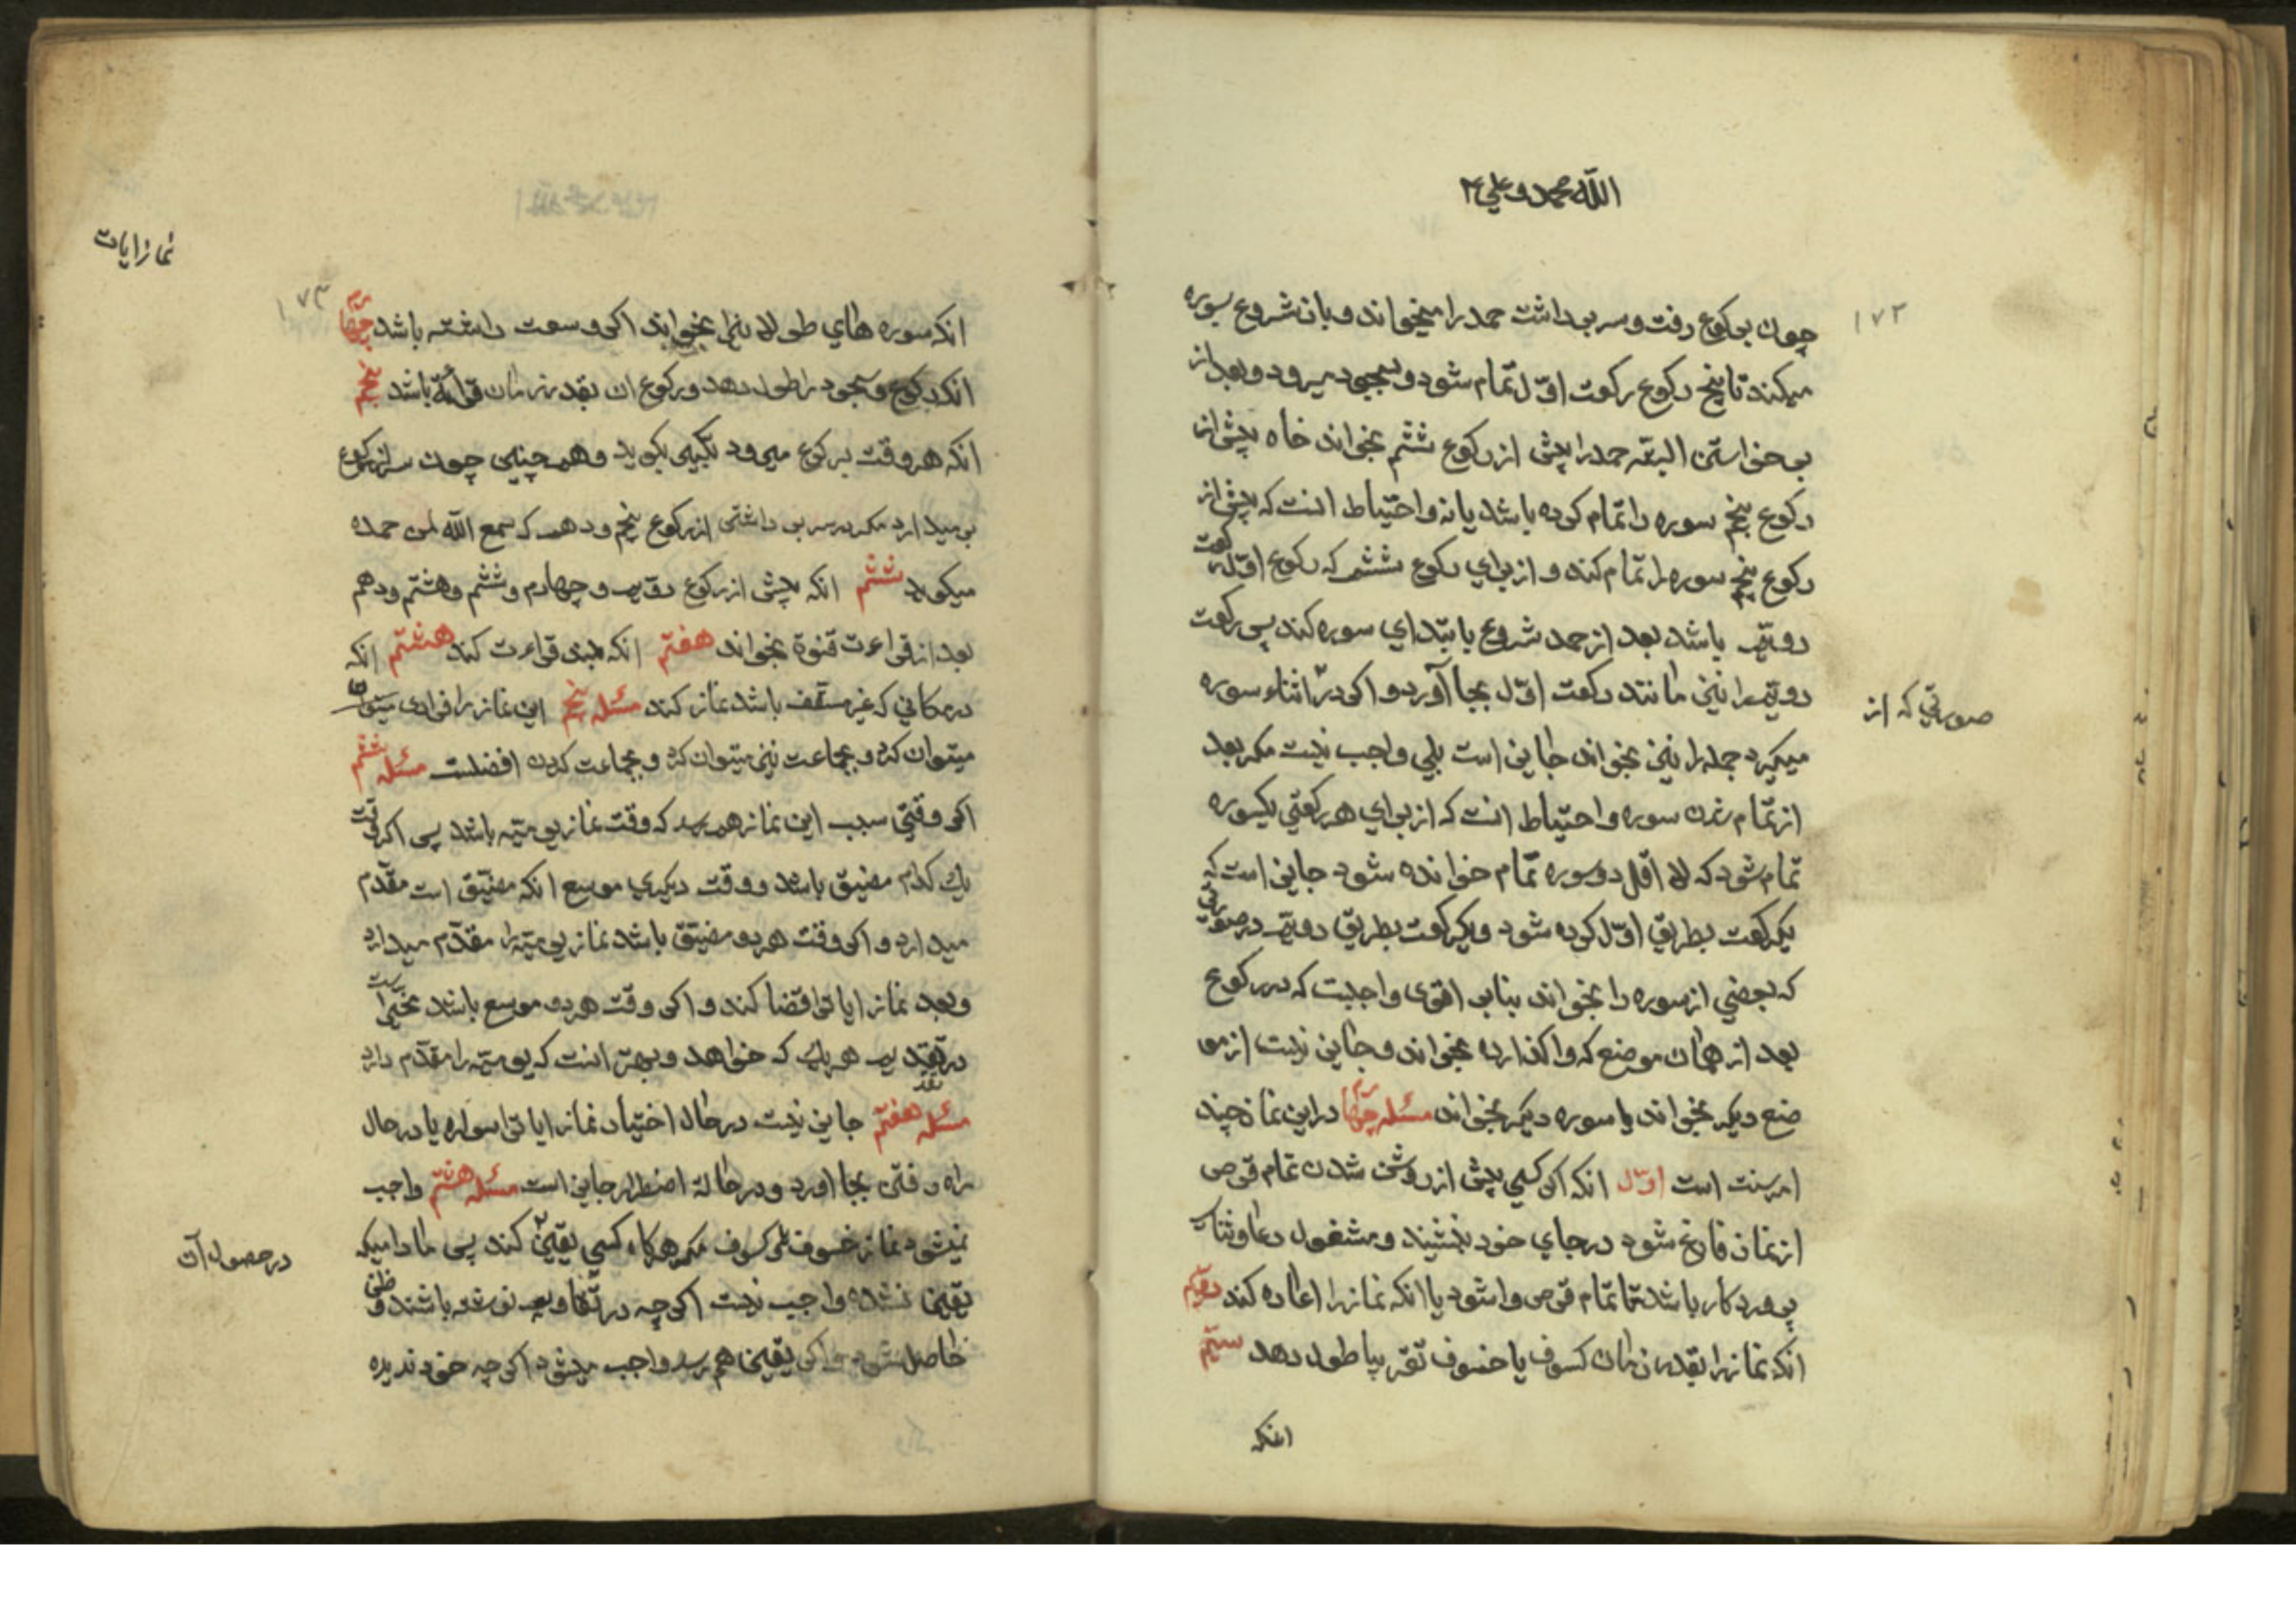 الله محمد و علي ٢
١٧٢
چون برکوع رفت و سر برداشت حمد را میخواند و باز شروع بسوره
میکند تا پنج رکوع رکعت اوّل تمام شود و بسجود میرود و بعد از
برخواستن البته حمد را پیش از رکوع ششم بخواند خاه پیش از
رکوع پنجم سوره را تمام کرده باشد یا نه و احتیاط انست که پیش از
رکوع پنجم سوره را تمام کند و از برای رکوع ششم که رکوع اوّل رکعت
دویّم باشد بعد از حمد شروع بابتدای سوره کند پس رکعت
دویّم را نیز مانند رکعت اوّل بجا آورد و اکر در اثناء سوره
صورتي که از
میکیرد حمد را نیز بخواند جایز است بلي واجب نیست مکر بعد
از تمام شدن سوره و احتیاط انست که از برای هر رکعتي یکسوره
تمام شود که لا اقل دو سوره تمام خوانده شود جایز است که
یکرکعت بطریق اوّل کرده شود و یکرکعت بطریق دویّم در صورتي
که بعضي از سوره را بخواند بنابر اقوی واجبست که در رکوع
بعد از همان موضع که واکذارده بخواند و جایز نیست از مو
ضع دیکر بخواند یا سوره دیکر بخواند مسئله چهارم در این نماز چند
امر سنت است اوّل انکه اکر کسي پیش از روشن شدن تمام قرص
از نماز فارغ شود در جاي خود بنشیند و مشغول دعا و ثناي
پرورد کار باشد تا تمام قرص وا شود یا انکه نماز را اعاده کند دویّم
انکه نماز را بقدر زمان کسوف یا خسوف تقریبا طول دهد سیّم
انکه
نماز ایات
١٧٣
انکه سوره هاي طولانیرا بخواند اکر وسعت داشته باشد چهارم
انکه رکوع و سجود را طول دهد و رکوع ان بقدر زمان قرائة باشد پنجم
انکه هر وقت برکوع میرود تکبیر بکوید و همچنین چون سر از رکوع
بر میدارد مکر در سر بر داشتن از رکوع پنجم و دهم که سمع الله لمن حمده
میکوید ششم انکه پیش از رکوع دویّم و چهارم و ششم و هشتم و دهم
بعد از قراءت قنوة بخواند هفتم انکه بلند قراءت کند هشتم انکه
در مکاني که غیر مسقف باشد نماز کند مسئله پنجم این نماز را فرادی
میتوان کرد و بجماعت نیز میتوان کرد و بجماعت کردن افضلست مسئله ششم
اکر وقتي سبب این نماز هم رسد که وقت نماز یومیّه باشد پس اکر وقت
یك کدام مضیق باشد و وقت دیکري موسع انکه مضیّق است مقدّم
میدارد و اکر وقت هر دو مضیّق باشد نماز یومیّه را مقدّم میدارد
و بعد نماز ایات را قضا کند و اکر وقت هر دو موسع باشد مخیّر است
در تقدیم هر یك که خواهد و بهتر انست که یومیّه را مقدّم دارد
مسئله هفتم جایز نیست در حال اختیار نماز ایات را سواره یا در حال
راه رفتن بجا اورد و در حالة اضطرار جایز است مسئله هشتم واجب
نمیشود نماز خسوف و کسوف مکر هرکاه کسي یقین کند پس مادامیکه
در حصول آن
یقین نشده واجب نیست اکر چه در تقاویم نوشته باشند و ظنّي
حاصل شود و اکر یقین هم رسد واجب میشود اکر چه خود ندیده